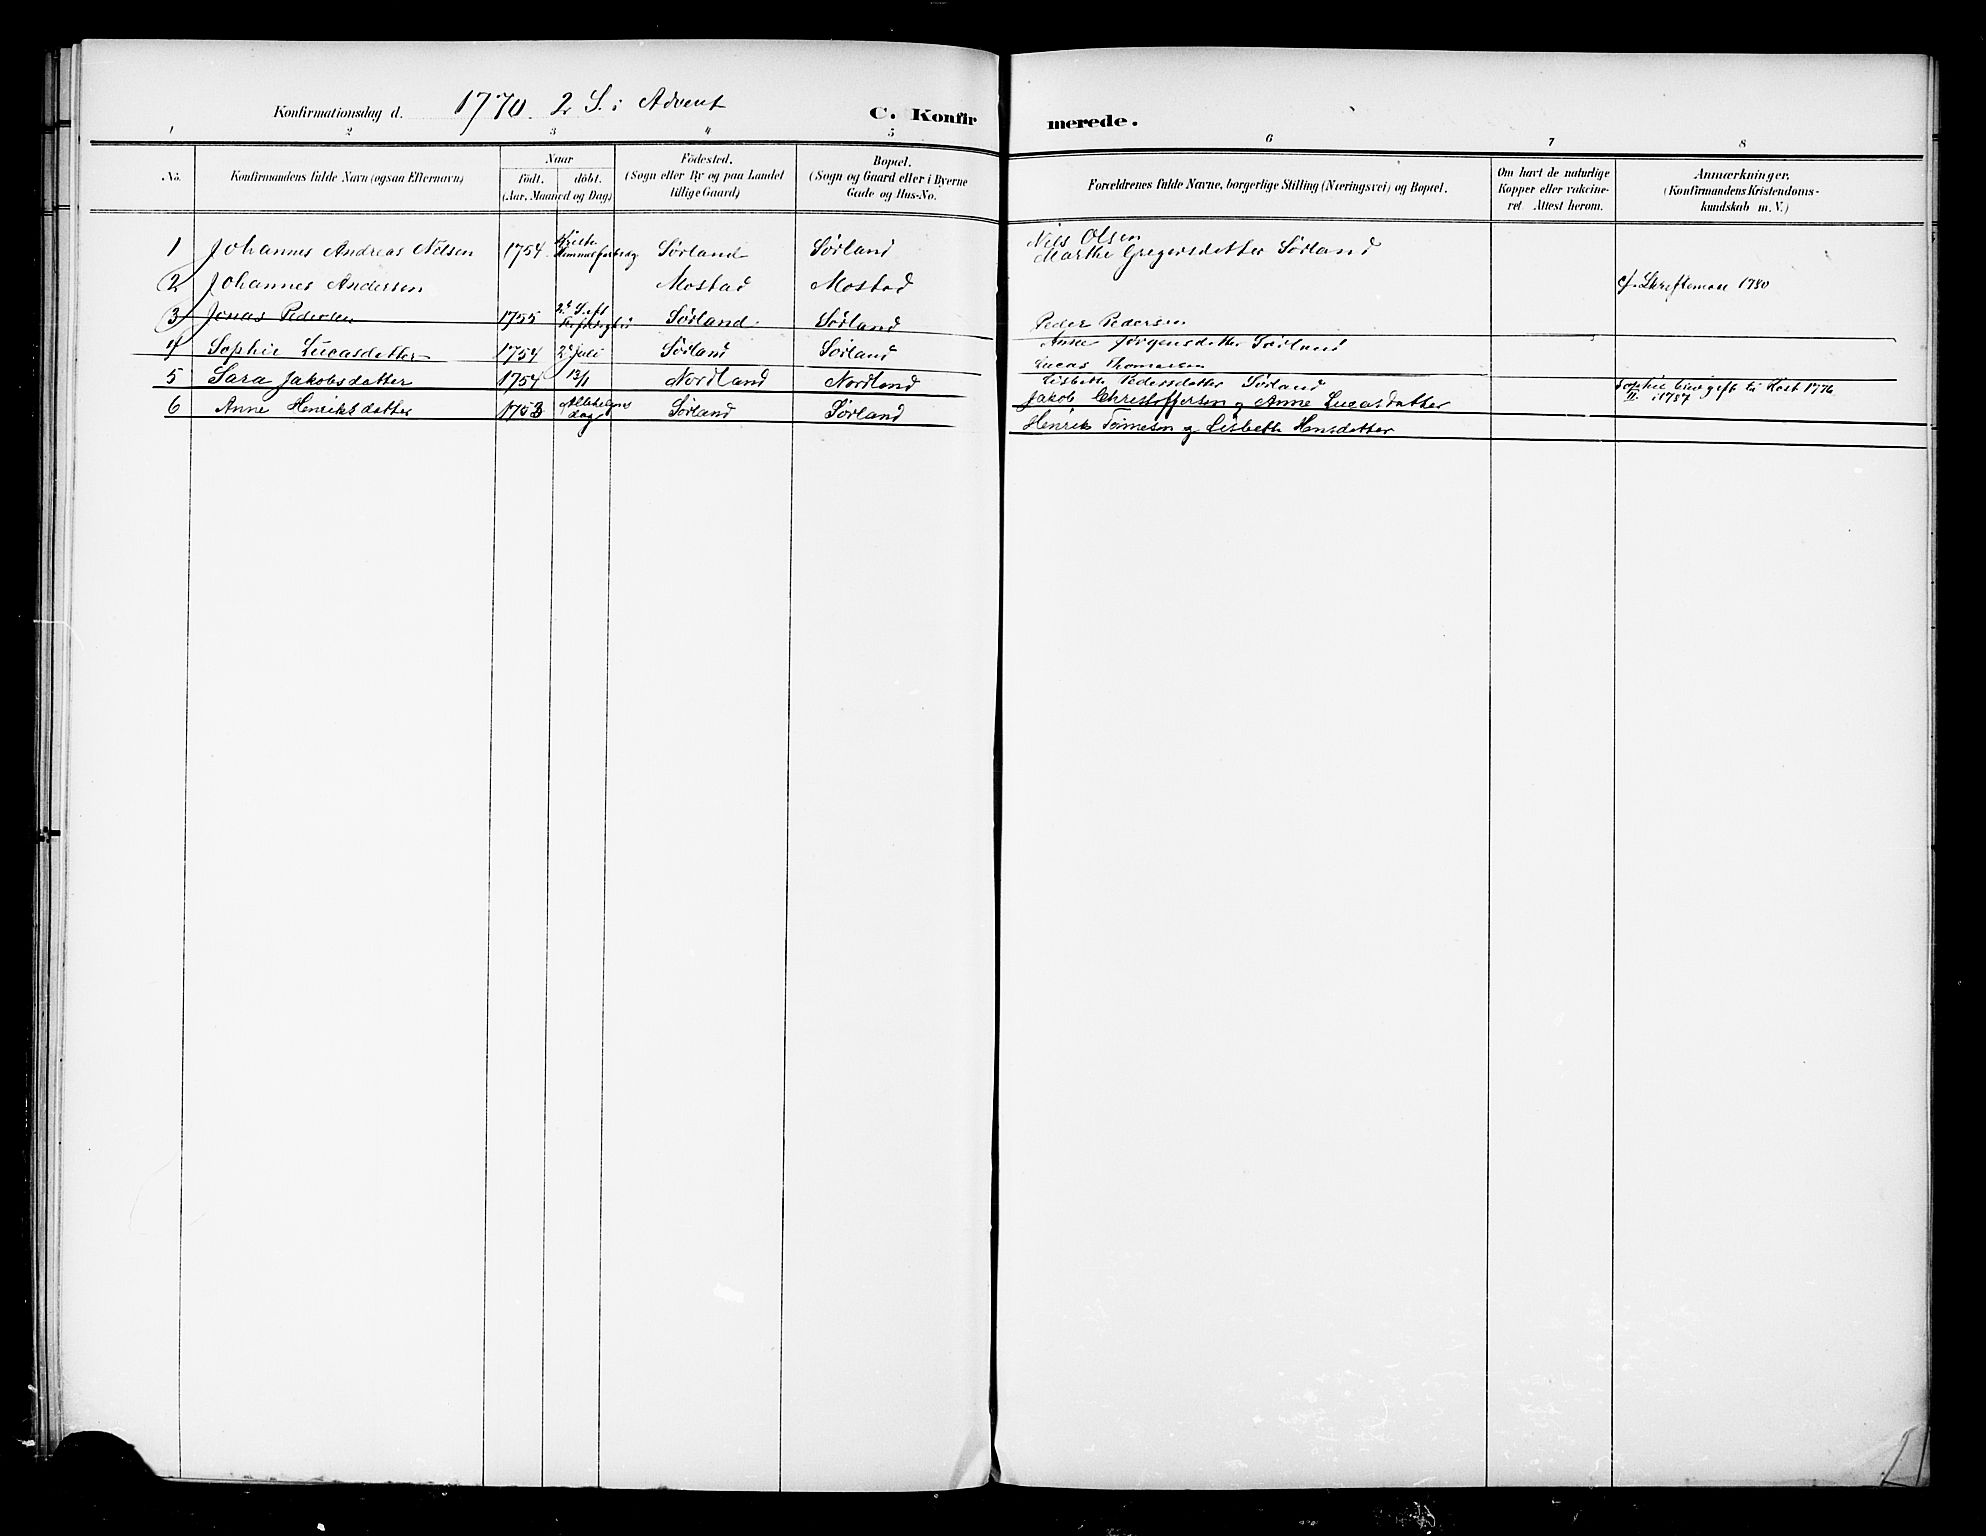 Konfirmationsdag d. 1770. 2 S. i Advent
C. Konfirmerede.
1 2 3 4 5 6 7 8
No.
Konfirmandens fulde Navn (ogsaa Efternavn)
Naar
Födt. döbt.
(Aar, Maaned og Dag)
Födested.
(Sogn eller By og paa Landet
tillige Gaard)
Bopæl.
(Sogn og Gaard eller i Byerne
Gade og Hus-No.
Forældrenes fulde Navne, borgerlige Stilling (Næringsvei) og Bopæl.
Om havt de naturlige
Kopper eller vakcine-
ret. Attest herom.
Anmærkninger.
(Konfirmandens Kristendoms-
kundskab m. V.)
1 Johannes Andreas Nilsen 1754 Kristi Himmelfartsdg Sørland Sørland Nils Olsen
Marthe Gregersdetter Sørland
2 Johannes Andersen Mostad Mostad cf. Skriftemaal 1780
3 Jonas Pedersen 1755 2d S. eft Sørland Sørland Peder Pedersen
Anne Jørgensdetter Sørland
4 Sophie Lucasdetter 1754 2d Juli Sørland Sørland Lucas Thomassen
Lisbeth Pedersdetter Sørland
5 Sara Jakobsdatter 1754 13/1 Nordland Nordland Jakob Christoffersen og Anne Lucasdatter
Sophie blev gift til Høst 1776
II. i 1787
6 Anne Henriksdatter 1753 Allehelgnes dag Sørland Sørland Henrik Tømesen og Lisbeth Hansdetter